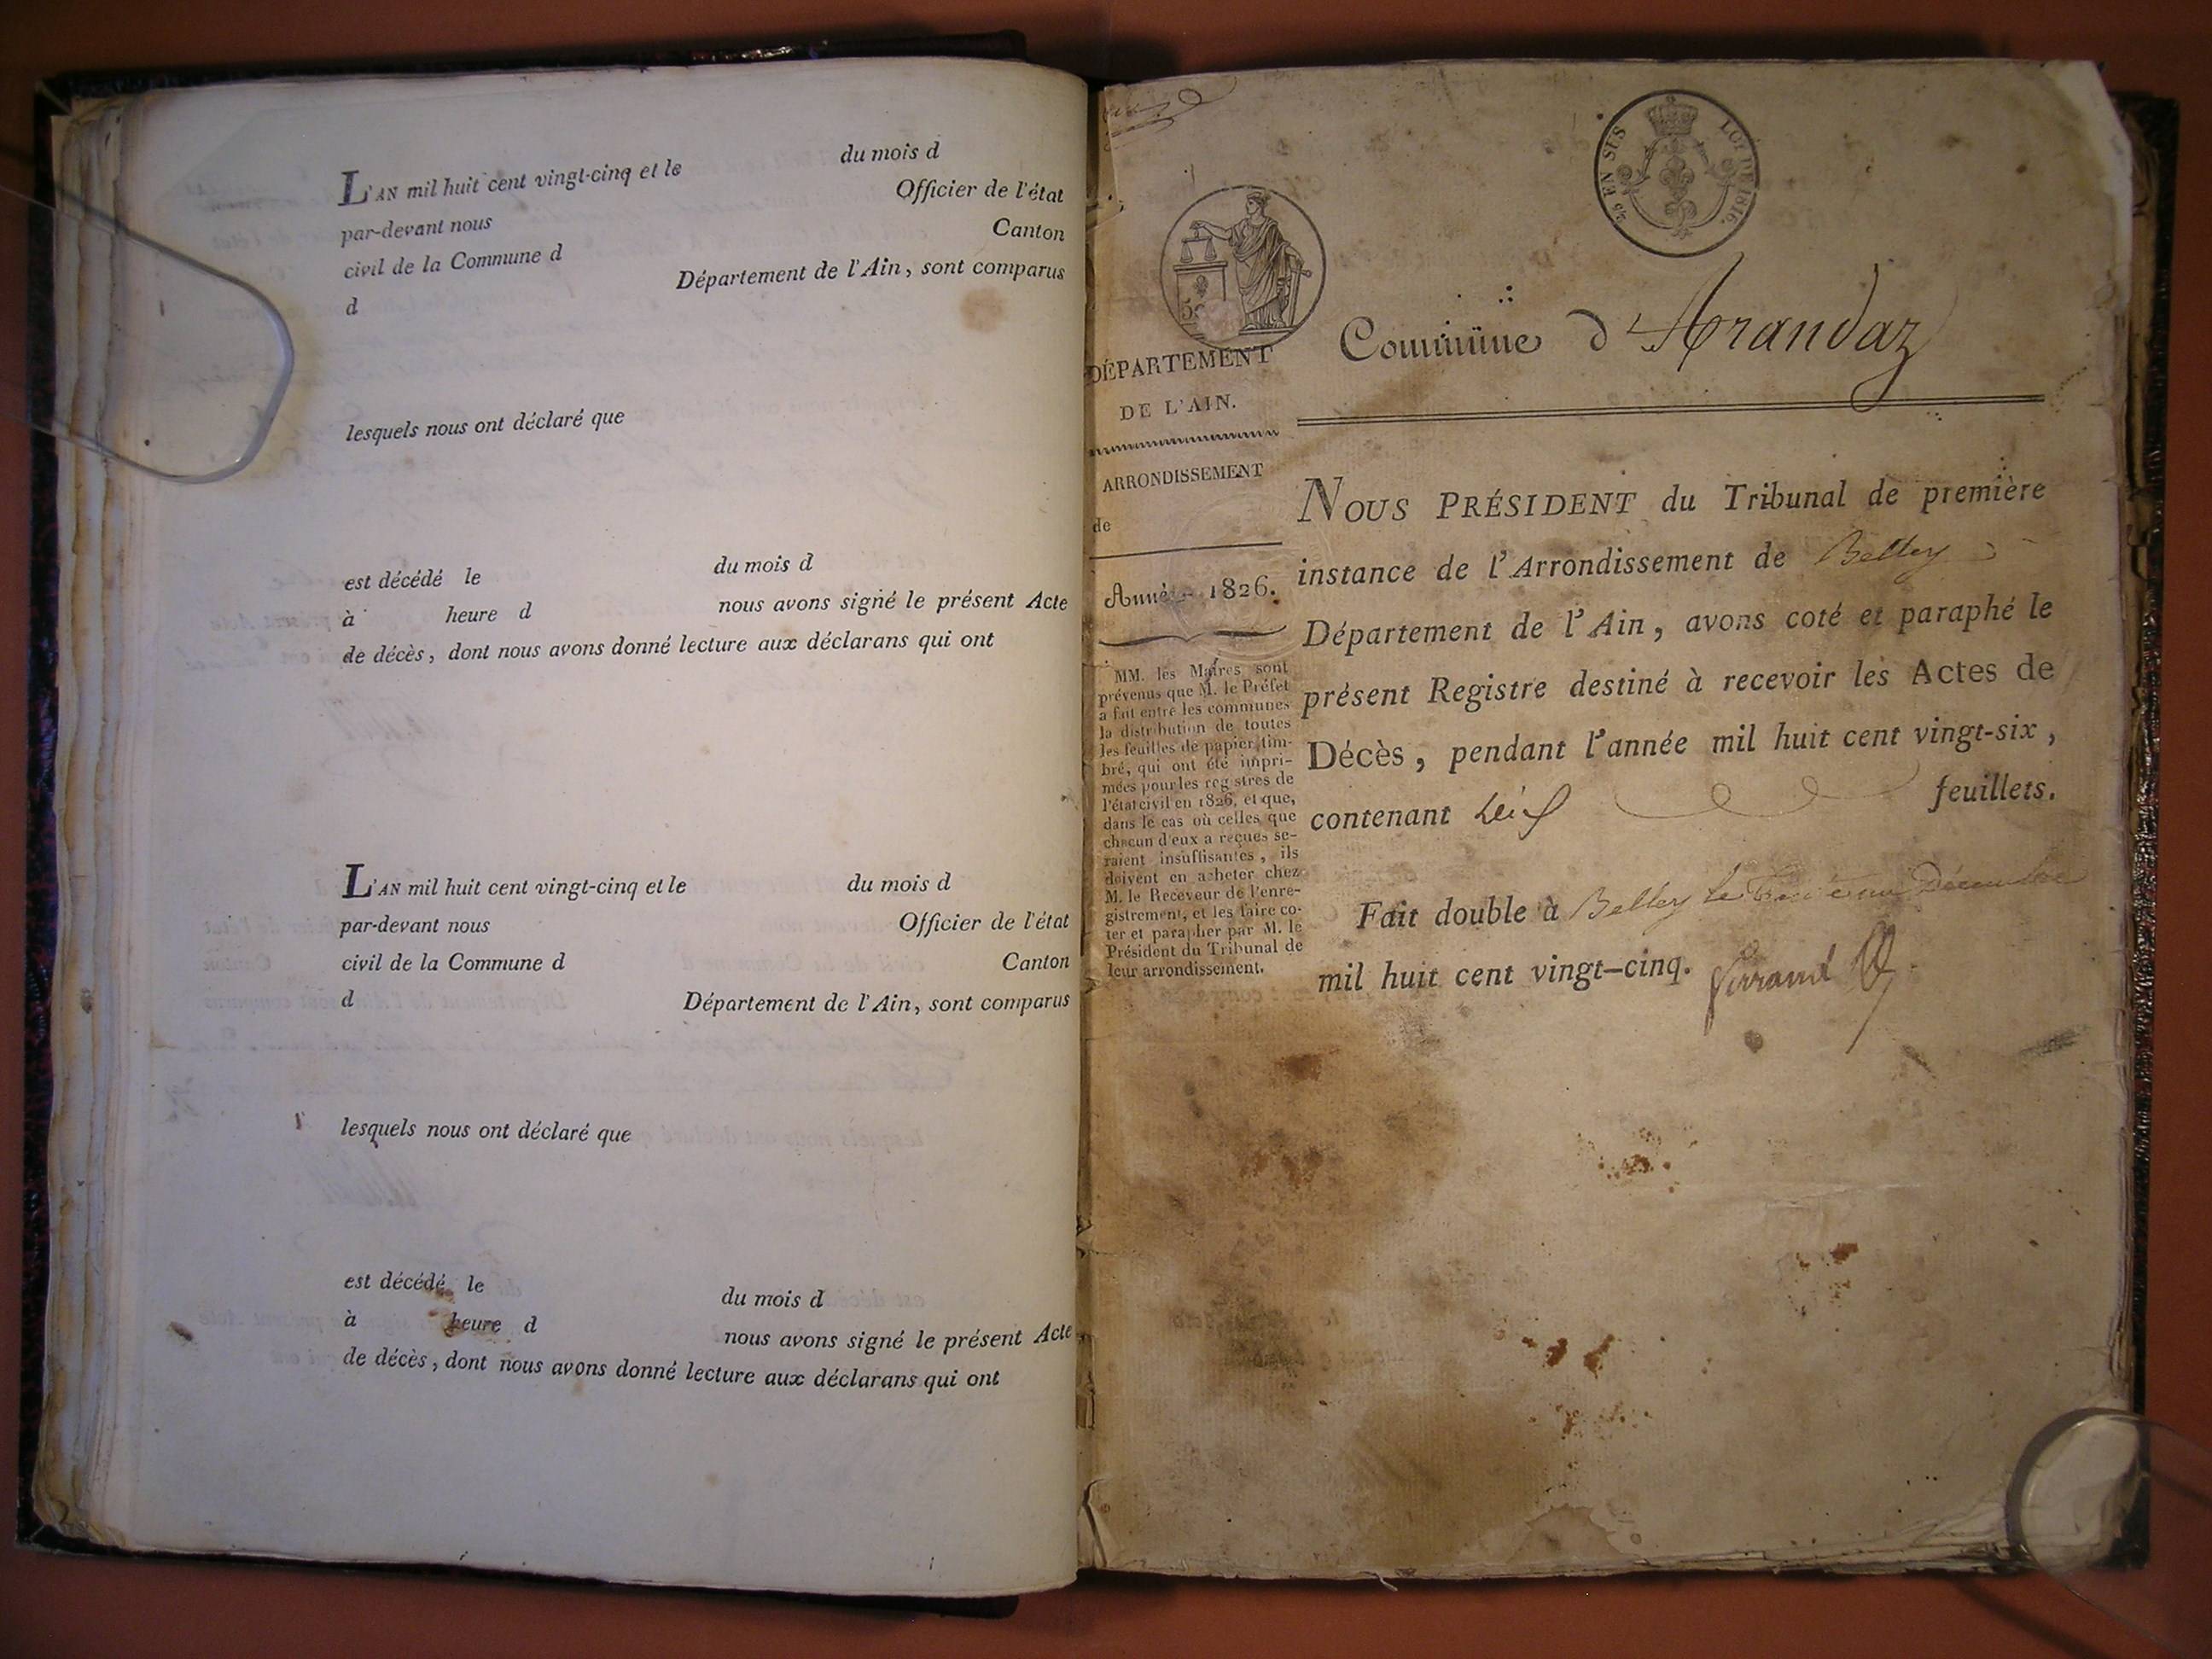 L'AN mil huit cent vingt-cinq et le du mois d
par-devant nous Officier de l'état
civil de la Commune d Canton
d Département de l'Ain, sont comparus
lesquels nous ont déclaré que
est décédé le du mois d
à heure d nous avons signé le présent Acte
de décès, dont nous avons donné lecture aux déclarans qui ont
L'AN mil huit cent vingt-cinq et le du mois d
par-devant nous Officier de l'état
civil de la Commune d Canton
d Département de l'Ain, sont comparus
lesquels nous ont déclaré que
est décédé le du mois d
à heure d nous avons signé le présent Acte
de décès, dont nous avons donné lecture aux déclarans qui ont
LOI DE 1816.
DÉPARTEMENT
DE L'AIN.
ARRONDISSEMENT
de
Année 1826.
MM. les Maires sont
prévenus que M. le Préfet
a fait entre les communes
la distribution de toutes
les feuilles de papier tim-
bré, qui ont été impri-
mées pour les registres de
l'état civil en 1826, et que,
dans le cas où celles que
chacun d'eux a reçues se-
raient insuffisantes, ils
doivent en acheter chez
M. le Receveur de l'enre-
gistrement, et les faire co-
ter et parapher par M. le
Président du Tribunal de
leur arrondissement.
Commune d'Arandaz
NOUS PRÉSIDENT du Tribunal de première
instance de l'Arrondissement de Belley
Département de l'Ain, avons coté et paraphé le
présent Registre destiné à recevoir les Actes de
Décès, pendant l'année mil huit cent vingt-six,
contenant feuillets.
Fait double à Belley le Décembre
mil huit cent vingt-cinq.